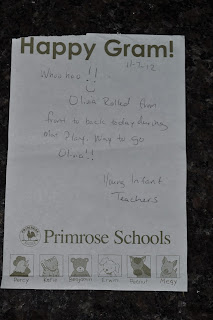 Happy Gram!
11-2-12
Whoo hoo!!
Olivia Rolled from
front to back today during
mat play. Way to go
Olivia!!
Young Infant
Teachers
Primrose Schools
Percy Katie Benjamin Erwin Peanut Megy